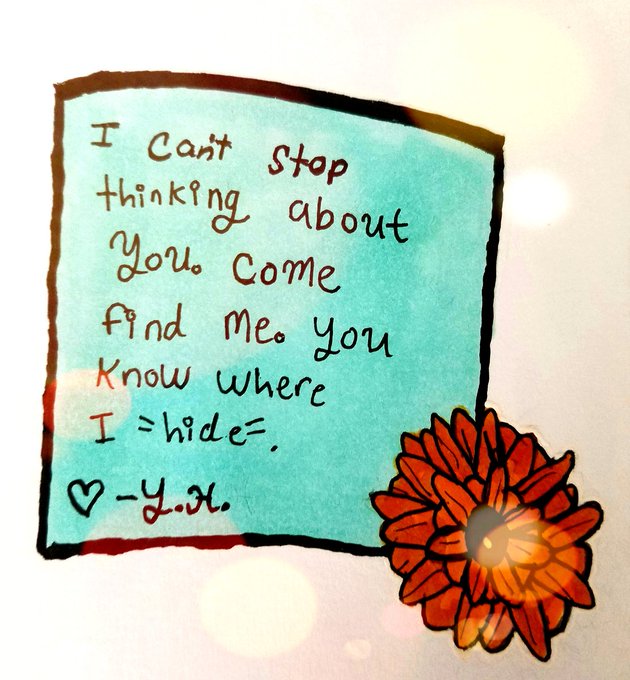 I can't stop
thinking about
you. Come
find me. you
know where
I =hide=.
♡ -Y.H.